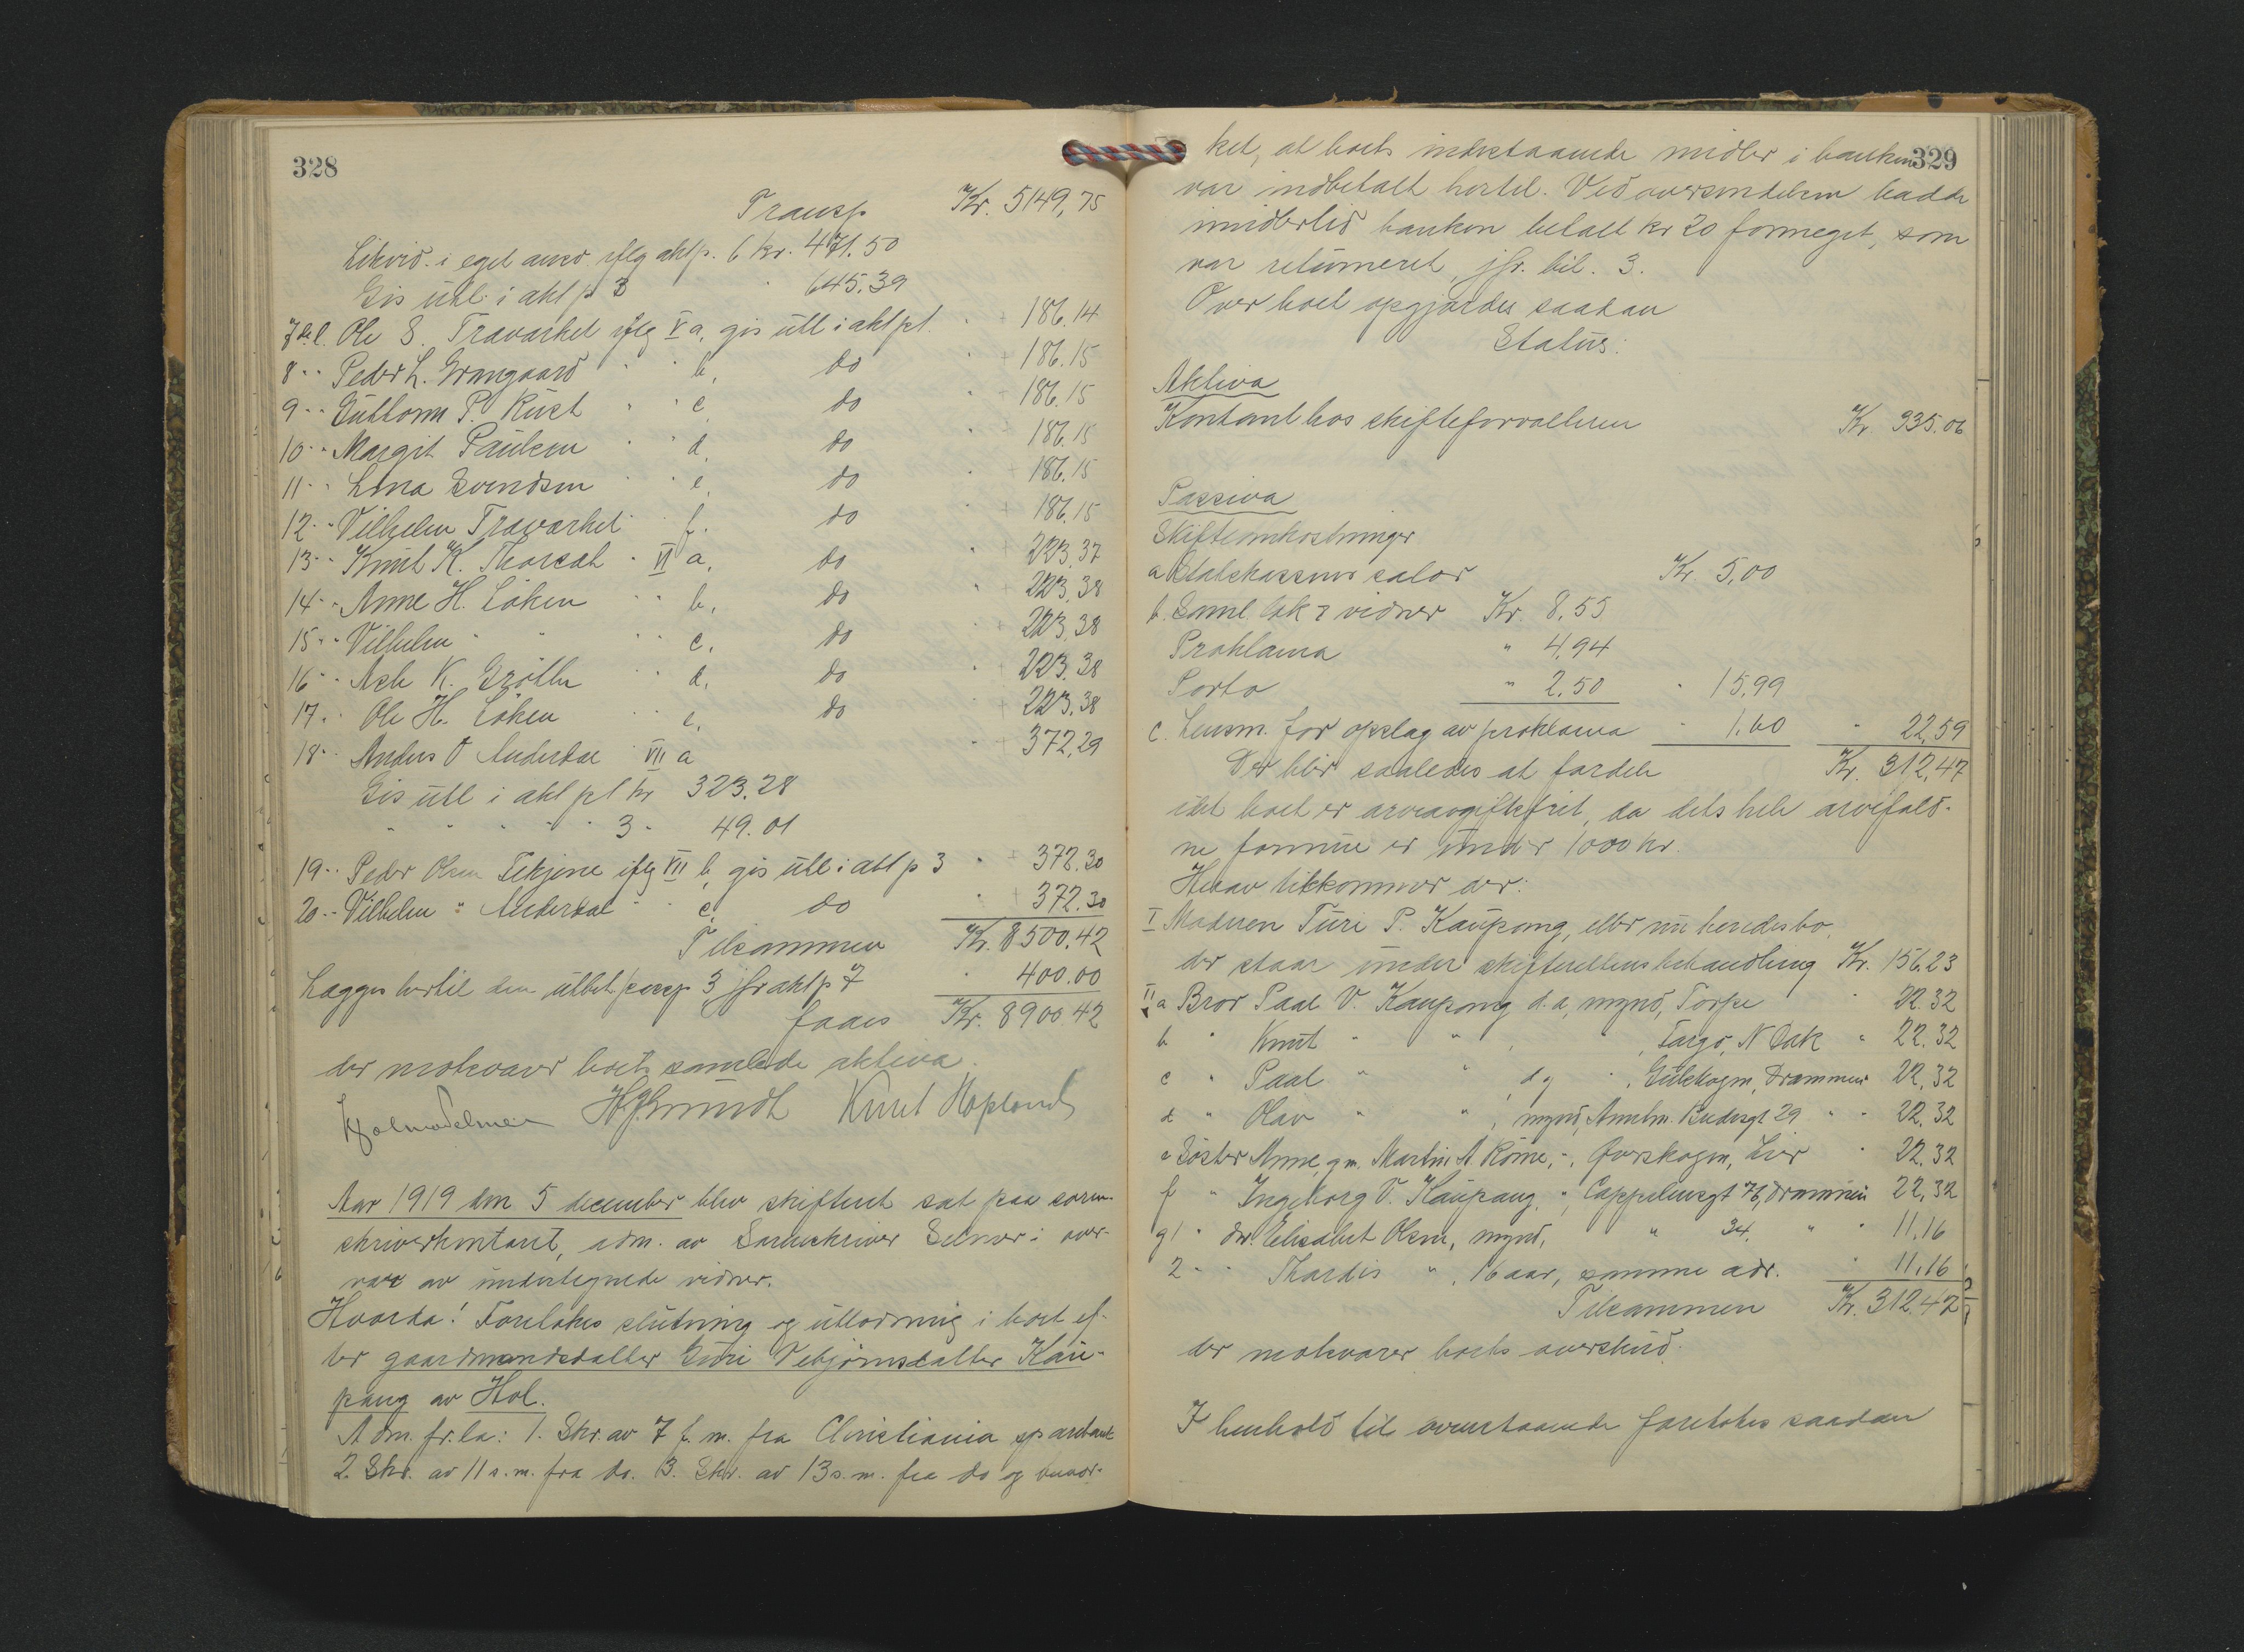 328
Transp Kr. 5149,75
Likvid. i eget ansv. iflg aktp. 6 kr. 471.50
Gis utl. i akt p 3 " 645.39
7de l. Ole S. Travarhet iflg V a, gis utl i akt p1. " 186.14
8 " " Peder L. Grangaard " " b, do " 186.15
9 " " Guttorm P. Rust " " c, do " 186.15
10 " " Margit Paulsen " " d, do " 186.15
11 " " Lina Svendsen " " e, do " 186.15
12 " " Vilhelm Travarhet " f. do " 186.15
13 " " Knut K. Thorsat " VI a, do " 223.37
14 " " Anne H. Löken " " b, do " 223.38
15 " " Vilhelm " " " " c, do " 223.38
16 " " Asle K. Gröthe " " d, do " 223.38
17 " " Ole H. Löken " " e, do " 223.38
18 " " Anders O Anderdal VII a " 372.29
Gis utl i akt p1 kr 323.28
" " " " " 3 " 49.01
19 " " Peder Olsen Tekjene iflg VII b, gis utl i akt p 3 " 372.30
20 " " Vilhelm " Anderdal " " c, do " 372.30
Tilsammen Kr. 8500.42
Lægges hertil den utbet. pasp 3 jfr aktp 7 " 400.00
faaes Kr. 8900.42
der motsvarer boets samlede aktiva.
H.J. Grundt Knut Hopland
Aar 1919 den 5 december blev skifteret sat paa soren-
skriverkontoret, adm. av Sorenskriver Selmer i over-
vær av undertegnede vidner.
Hvorda! Foretokes slutning og utlodning i boet ef-
ter gaardmandsdatter Guri Vebjørnsdatter Kau-
pang av Hol.
Adm. fr.la: 1. Skr. av 7 f. m. fra Christiania sparebank
2. Skr. av 11 s. m. fra do. 3. Skr. av 13 s. m. fra do og bemær-
329
ket, at boets indestaaende midler i banken
var indbetalt hertil. Ved oversendelsen hadde
imidlertid banken betalt kr 20 formeget, som
var returneret, jfr. bil. 3.
Over boet opgjordes saadan
Status:
Aktiva
Kontant hos skifteforvalteren Kr. 935.06
Passiva
Skifteomkostninger
a Statskassens salær Kr. 5,00
b. Saml. lok & vidner Kr. 8.55
Proklama " 4,94
Porto " 2.50 " 15,99
c. Lensm. for opslag av proklama " 1,60 " 22,59
Der blir saaledes at fordele Kr. 312,47
idet boet er arveavgiftsfrit, da dets hele arvefald-
ne formue er under 1000 kr.
Herav tilkommer der:
I Moderen Turi P. Kaupang, eller nu hendes bo,
der staar under skifterettens behandling Kr. 156.23
II a Bror Paal V. Kaupang d. a, mynd, Torpe " 22.32
b " Knut " " , " , Fargo, N Dak " 22.32
c " Paal " " , d y " , Gulskogen, Drammen 22,32
d " Olav " " , mynd, Annelm. Budesgt 29 " " 22,32
e Søster Anne, gm. Martin A. Röine, " , Överskogen, Lier " 22,32
f " Ingeborg V. Kaupang, " , Cappelensgt 76, Drammen 22,32
g 1 " dtr. Elisabet Olsen, mynd, " 34, " " 11,16
2 " " Thordis " , 16 aar, samme adr. " 11,16
Tilsammen Kr. 312.47
der motsvarer boets overskud.
I henhold til ovenstaaende foretokes saadan